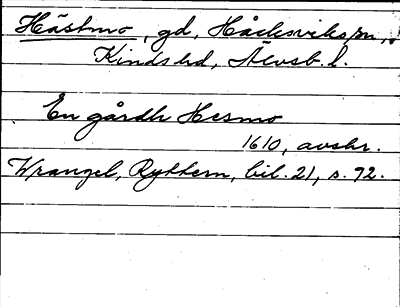 Hästmo, gd, Håcksviks sn,
Kinds hd, Älvsb. l.
En gårdh Hesmo
1610, avskr.
Wrangel, Ryttern, bil. 21, s. 72.